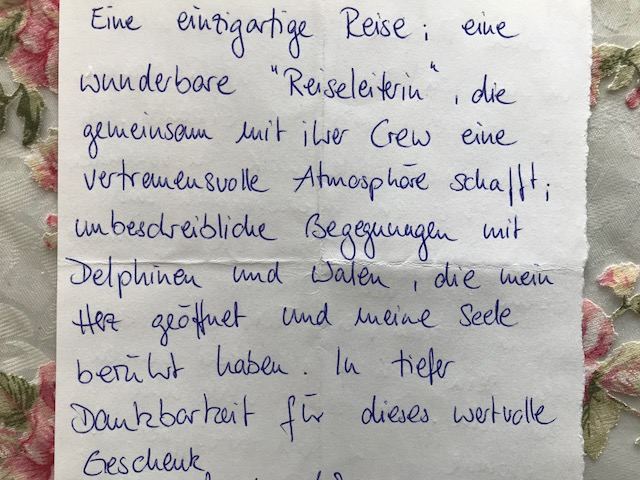 Eine einzigartige Reise; eine
wunderbare "Reiseleiterin", die
gemeinsam mit ihrer Crew eine
vertrauensvolle Atmosphäre schafft;
unbeschreibliche Begegnungen mit
Delphinen und Walen, die mein
Herz geöffnet und meine Seele
berührt haben. In tiefer
Dankbarkeit für dieses wertvolle
Geschenk